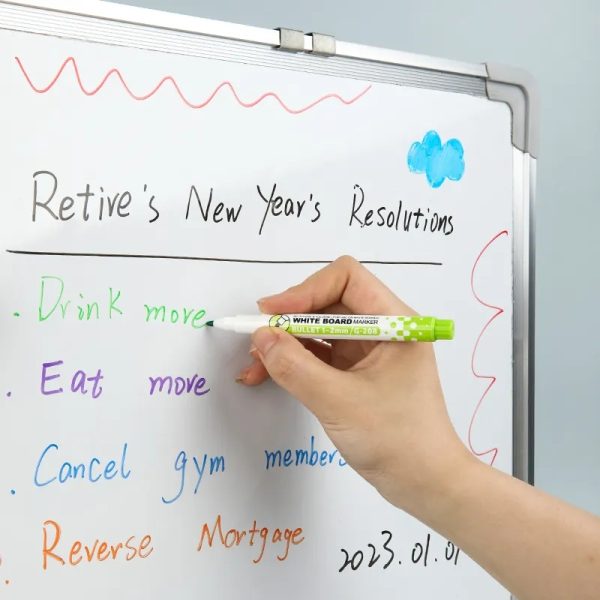 Retire's New Year's Resolutions
. Drink more
. Eat move
. Cancel gym members
. Reverse Mortgage
2023.01.01
WHITE BOARD MARKER
BULLET 1-2mm/G-208